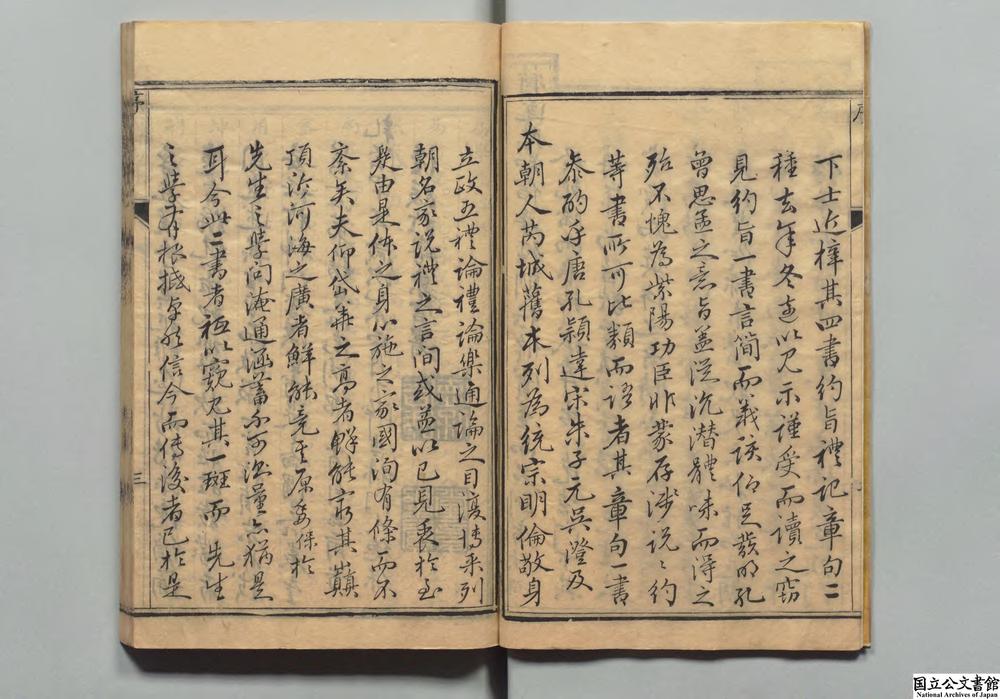 序
下士近梓其四書約旨禮記章句二
種去年冬走以見示謹受而讀之竊
見約旨一書言簡而義該作足發明孔
曾思孟之意旨蓋從沉潛體味而得之
殆不愧為紫陽功臣非蒙存淺說說約
等書所可比類而語者其章句一書
叅酌乎唐孔穎達宋朱子元吳澄及
本朝人芮城舊本列為統宗明倫敬身
立政五禮論禮論樂通論之目復博采列
朝名家說禮之言間或益以已見衷於至
是由是体之身心施之家國洵有條而不
紊矣夫仰岱華之高者鮮能窮其巔
頂泝河海之廣者鮮能竟其原委保於
先生之學問淹通涵蓄不可測量亦猶是
耳今此二書者祗以窺見其一斑而 先生
之學有根抵卓然信今而傳後者已於是
序
三
国立公文書館
National Archives of Japan